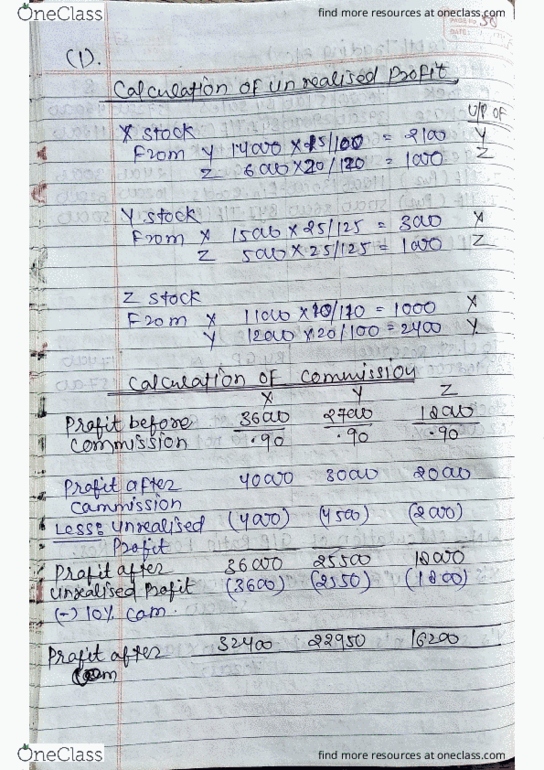 OneClass
find more resources at oneclass.com
(1).
Calculation of unrealised Profit
U/P OF
X stock
From Y 14000 X 15/100 = 2100 Y
Z 6000 X 20/120 = 1000 Z
Y stock
From X 15000 X 25/125 = 3000 X
Z 5000 X 25/125 = 1000 Z
Z stock
From X 11000 X 10/110 = 1000 X
Y 12000 X 20/100 = 2400 Y
Calculation of commission
X Y Z
Profit before 36000 27000 18000
commission .90 .90 .90
Profit after 40000 30000 20000
Cammission
Less: unrealised (4000) (4500) (2000)
Profit
Profit after 36000 25500 18000
unrealised Profit (3600) (2550) (1800)
(-) 10% com.
Profit after 32400 22950 16200
com
OneClass
find more resources at oneclass.com